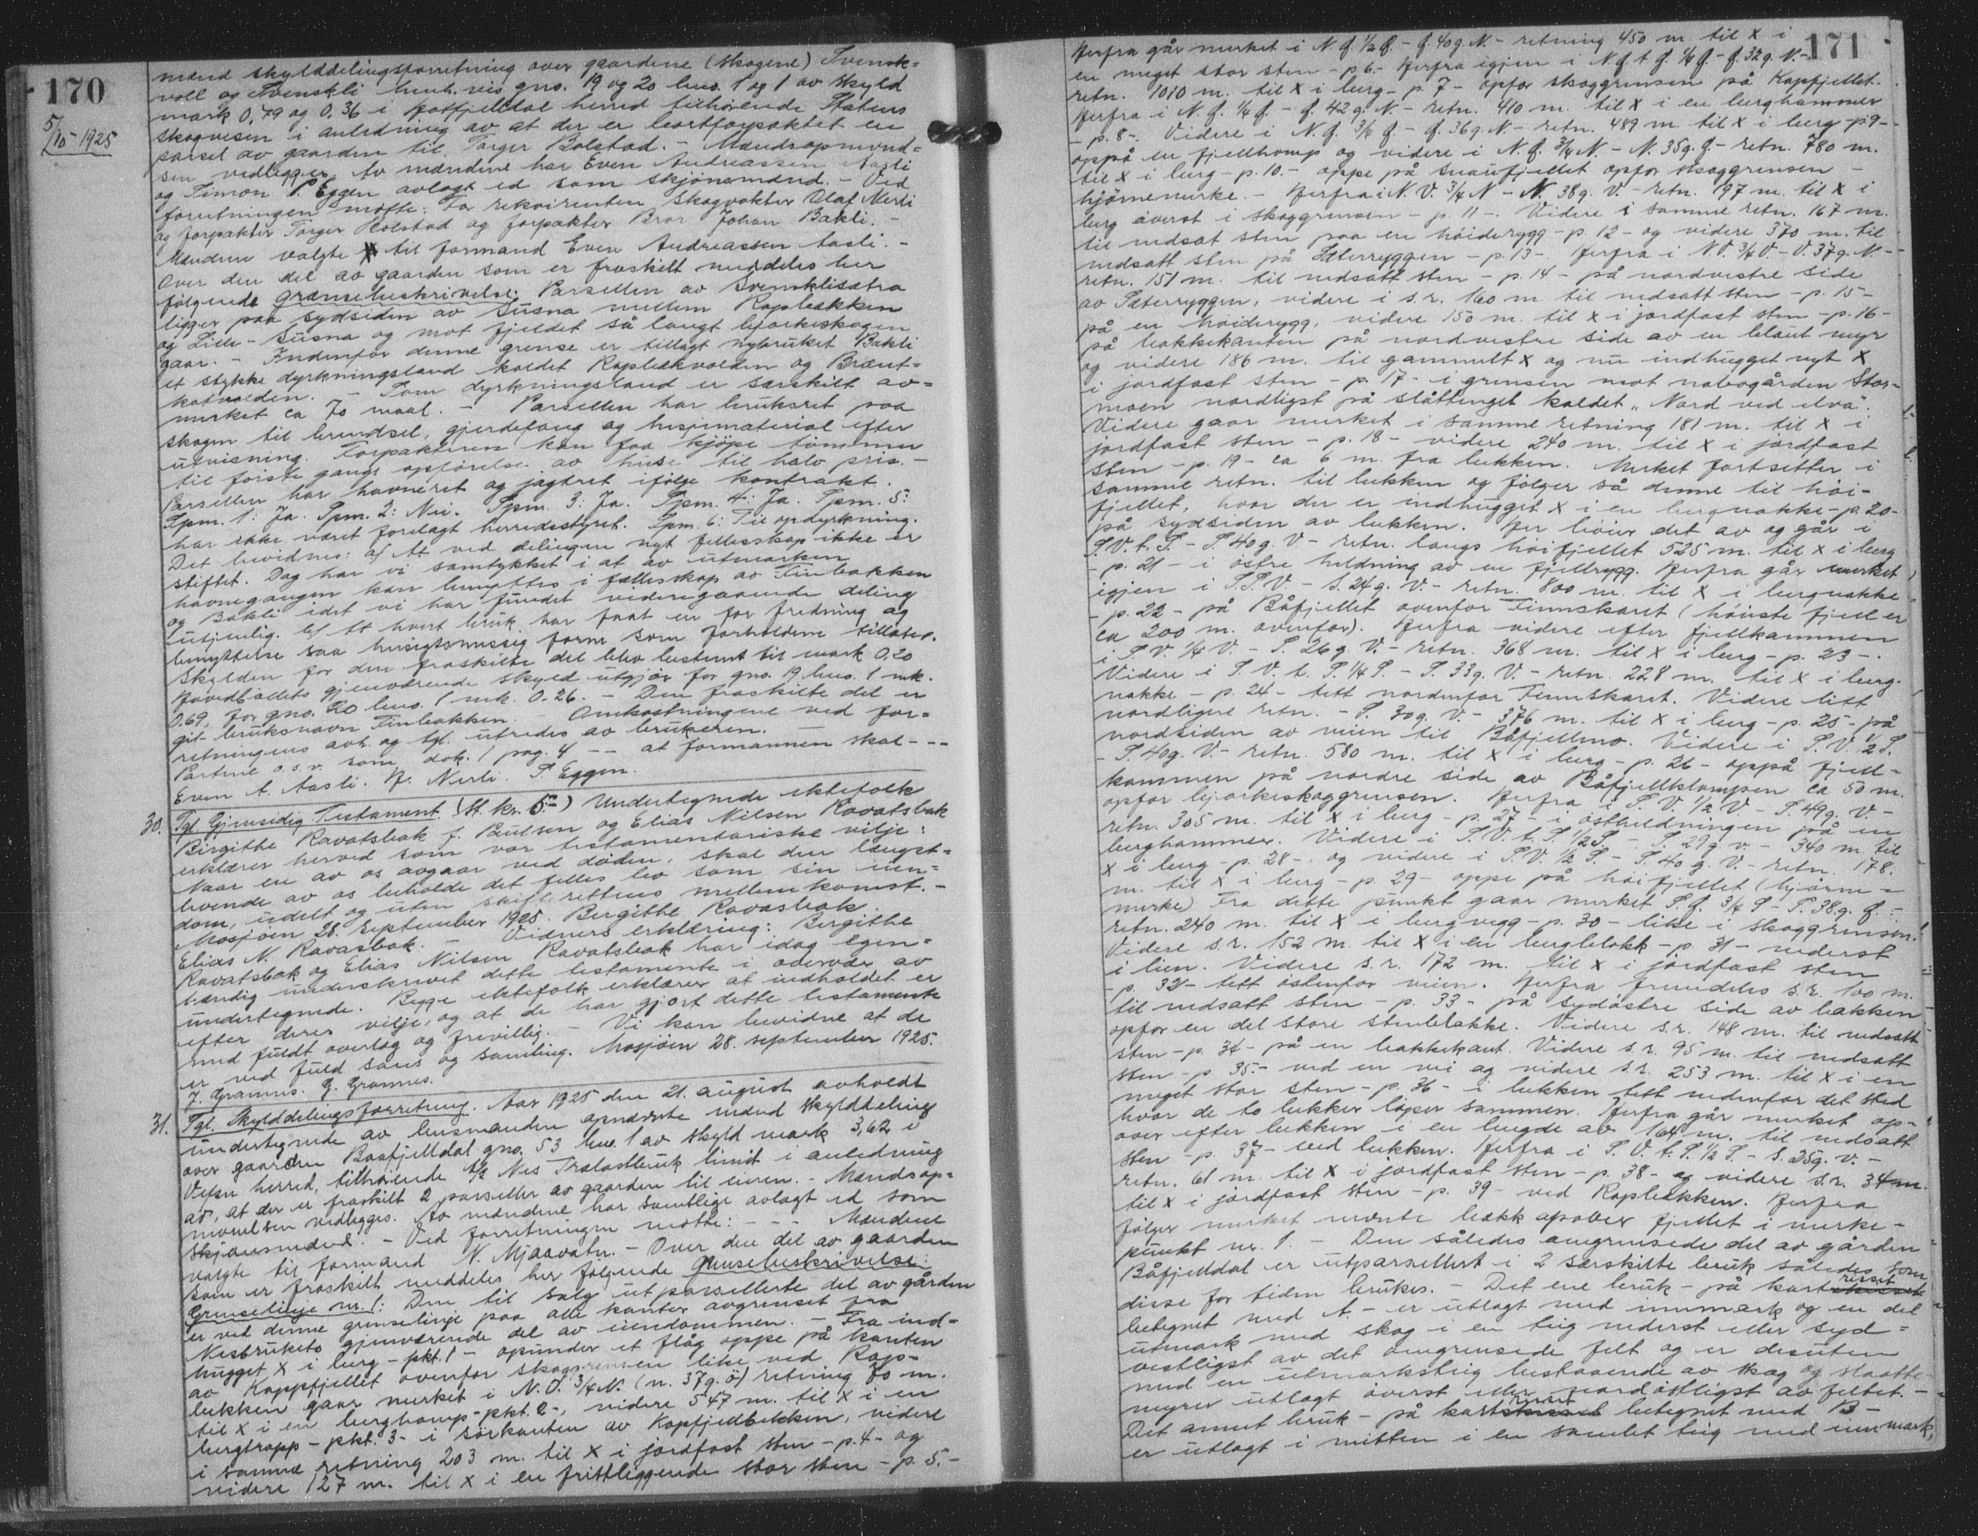 170
5/10-1925
mænd skylddelingsforretning over gaardene (skogene) Svensk-
voll og Svenskli henh.vis gno. 19 og 20 bno. 1 og 1 av skyld
mark 0,79 og 0,36 i Hatfjelldal herred tilhørende Statens
skogvesen i anledning av at der er bortforpaktet en
parsel av gaarden til Torger Bolstad. - Mændsopmevnel-
sen vedlegges. Av mændene har Even Andreassen Aasli
og Simon P. Eggen avlagt ed som skjønsmænd. - Ved
forretningen møtte: For rekvirenten skogvokter Olaf Nerli
og forpakter Torger Bolstad og forpakter Bror Johan Bakli. -
Mændene valgte til formand Even Andreassen Aasli. -
Over den del av gaarden som er fraskilt meddeles her
følgende grænsebeskrivelse: Parsellen av Svensklisætra
ligger paa sydsiden av Susna mellem Rapbækken
og Lille-Susna og mot fjeldet så langt bjørkeskogen
gaar. - Indenfor denne grense er tillagt nybruket Bakli
et stykke dyrkningsland kaldet Rapbækvolden og Brænt-
kotvolden. - Som dyrkningsland er særskilt av-
merket ca 70 maal. - Parsellen har bruksret paa
skogen til brendsel, gjerdefang og hesjemateriel efter
utvisning. Forpakteren kan faa kjøpe tømmer
til første gangs opførelse av huse til halv pris. -
Parsellen har havneret og jagtret ifølge kontrakt.
Spm. 1: Ja. Spm. 2: Nei. Spm. 3: Ja. Spm. 4: Ja. Spm. 5:
har ikke været forelagt herredsstyret. Spm. 6: Til opdyrkning.
Det bevidnes: a) At ved delingen nyt fellesskap ikke er
stiftet. Dog har vi samtykket i at av utmarken
havnegangen kan benyttes i fællesskap av Finbakken
og Bakli idet vi har fundet videregaaende deling
utjenlig. b) At hvert bruk har faat en for fredning og
benyttelse saa hensigtsmessig form som forholdene tillater.
Skylden for den fraskilte del blev bestemt til mark 0,20
Hovedbølets gjenværende skyld utgjør for gno. 19 bno. 1 mk.
0,69, for gno. 20 bno. 1 mk. 0.26. - Den fraskilte del er
git bruksnavn Finbakken. - Omkostningene ved for-
retningens avh. og tgl. utredes av brukeren. -
Partene o.s.v. som dok. 1 pag. 4 - - at formannen skal - - -
Even A. Aasli. N. Nerli. S. Eggen.
30. Tgl. Gjensidig Testament (St. kr. 5-) Undertegnede ektefolk
Birgithe Ravatsbak f. Paulsen og Elias Nilsen Ravatsbak
erklærer herved som vor testamentariske vilje:
Naar en av os avgaar ved døden, skal den længst-
levende av os beholde det felles bo som sin eien-
dom, udelt og uten skifterettens mellemkomst. -
Mosjøen 28. september 1925. Birgithe Ravasbak.
Elias N. Ravasbak. - Vidners erklæring: Birgithe
Ravatsbak og Elias Nilsen Ravatsbak har idag egen-
hændig underskrevet dette testamente i overvær av
undertegnede. Begge ektefolk erklærer at indholdet er
efter deres vilje, og at de har gjort dette testamente
med fuldt overlæg og frivillig. - Vi kan bevidne at de
er ved fuld sans og samling. Mosjøen 28. september 1925.
J. Grannes. G. Grannes.
31. Tgl. Skylddelingsforretning. Aar 1925 den 21. august avholdt
undertegnede av lensmanden opnævnte mænd skylddeling
over gaarden Baafjelldal gno. 53 bno. 1 av skyld mark 3,62 i
Vefsn herred, tilhørende A/S Nes Trælastbruk limit i anledning
av, at der er fraskilt 2 parseller av gaarden til eieren. - Mændsop-
nevnelsen vedlegges. Av mændene har samtlige avlagt ed som
skjønsmænd. - Ved forretningen møtte: - - - Mændene
valgte til formand N. Mjaavatn. - Over den del av gaarden
som er fraskilt meddeles her følgende grensebeskrivelse:
Grenselinje nr. 1: Den til salg utparsellerte del av gården
er ved denne grenselinje paa alle kanter avgrenset fra
Nesbrukets gjenværende del av eiendommen. - Fra ind-
hugget x i berg - pkt. 1 - opunder et flåg oppe på kanten
av Kappfjellet ovenfor skoggrensen like ved Rap-
bekken gaar merket i N.O. 3/4 N. (n. 37 g. ø) retning 70 m.
til x i en berghamp - pkt. 2 -, videre 547 m. til x i en
bergtropp - pkt. 3 - i sørkanten av Kapfjellbekken, videre
i samme retning 203 m. til x i jordfast sten - p. 4 - og
videre 127 m. til x i en frittliggende stor sten - p. 5. -
171
Herfra går merket i N.Ø. 1/2 Ø. - Ø. 40 g. N. - retning 450 m. til x i
en meget stor sten - p. 6. - Herfra igjen i N Ø t Ø. 1/4 Ø - Ø. 32 g. N. -
retn. 1010 m. til x i berg - p. 7 - opfor skoggrensen på Kapfjellet.
Herfra i N. Ø. 1/4 Ø - Ø. 42 g. N - retn. 410 m. til x i en berghammer
- p. 8 -. Videre i N. Ø. 3/4 Ø - Ø. 36 g. N - retn. 489 m. til x i berg - p. 9 -
oppå en fjellhamp og videre i N. Ø. 3/4 N. - N. 35 g. Ø - retn. 780 m.
til x i berg - p. 10. - oppe på Snaufjellet opfor skoggrensen -
hjørnemerke. - Herfra i N. V. 3/4 N - N. 38 g. V. - retn. 197 m. til x i
berg øverst i skoggrensen - p. 11 -. Videre i samme retn. 167 m.
til nedsat sten paa en høiderygg - p. 12 - og videre 370 m. til
nedsatt sten på Sæterryggen - p. 13 - Herfra i N V. 3/4 V. - V. 37 g. N. -
retn. 151 m. til nedsatt sten - p. 14 - på nordvestre side
av Sæterryggen, videre i s. r. 160 m til nedsatt sten - p. 15 -
på en høiderygg, videre 150 m. til x i jordfast sten - p. 16 -
på bakkekanten på nordvestre side av en blaut myr
og videre 186 m. til gammelt x og nu indhugget nyt x
i jordfast sten - p. 17 - i grensen mot nabogården Stor-
moen nordligst på slåttenget kaldet „Nord ved elva".
Videre gaar merket i samme retning 181 m. til x i
jordfast sten - p. 18 - videre 240 m. til x i jordfast
sten - p. 19 - ca 6 m. fra bekken. Merket fortsetter i
samme retn. til bekken og følger så denne til høi-
fjellet, hvor der er indhugget x i en bergnakke - p. 20 -
på sydsiden av bekken. Her bøier det av og går i
S.V. t. S. - S. 40 g. V - retn. langs høifjellet 525 m. til x i berg
- p. 21 - i østre heldning av en fjellrygg. Herfra går merket
igjen i S.S.V - S. 24 g. V. - retn. 800 m. til x i bergnakke
- p. 22 - på Båfjellet ovenfor Finnskaret (høieste fjell er
ca 200 m. ovenfor). Herfra videre efter fjellkammen
i S V. 1/4 V. - S. 26 g. V. - retn. 368 m. til x i berg - p. 23 -.
Videre i S. V. t. S. 1/4 S. - S. 33 g. V. - retn. 228 m. til x i berg-
nakke - p. 24 - tett nordenfor Finnskaret. Videre litt
nordligere retn. - S. 30 g. V. - 376 m. til x i berg - p. 25 - på
nordsiden av veien til Båfjellmo. Videre i S. V. 1/2 S.
- S. 40 g. V. - retn. 580 m. til x i berg - p. 26 - oppå fjell-
kammen på nordre side av Båfjellklumpen ca 50 m.
opfor bjørkeskoggrensen. Herfra i S. V. 1/2 V - S. 49 g. V. -
retn. 305 m. til x i berg - p. 27 - i østheldningen på en
berghammer. Videre i S. V. t. S. 1/2 S. - S. 29 g. v. - 340 m. til
x i berg - p. 28 -. og videre i S. V. 1/2 S. - S. 40 g. V. - retn. 178.
m. til x i berg - p. 29 - oppe på høifjellet (hjørne-
merke) Fra dette punkt gaar merket S. Ø. 3/4 S - S. 38 g. Ø. -
retn. 240 m. til x i bergvegg - p. 30 - like i skoggrensen.
Videre s. r. 152 m. til x i en bergblokk - p. 31 - nederst
i lien. Videre s. r. 172 m. til x i jordfast sten
- p. 32 - tett østenfor veien. Herfra fremdeles s. r. 100 m.
til nedsatt sten - p. 33 - på sydøstre side av bakken
opfor en del store stenblokke. Videre s. r. 148 m. til nedsatt
sten - p. 34 - på en bakkekant. Videre s. r. 95 m. til nedsatt
sten - p. 35. - ved en vei og videre s. r. 253 m. til x i en
meget stor sten - p. 36 - i bekken tett nedenfor det sted
hvor de to bekker løper sammen. Herfra går merket op-
over efter bekken i en lengde av 164 m. til nedsatt
sten - p. 37 - ved bekken. Herfra i S. V. t. S. 1/2 S. - S. 25 g. v. -
retn. 61 m. til x i jordfast sten - p. 38 - og videre s. r. 34 m.
til x i jordfast sten - p. 39 - ved Rapbekken. Herfra
følger merket nevnte bækk opover fjellet i merke-
punkt nr. 1 - Den således angrensede del av gården
Båfjelldal er utparsellert i 2 særskilte bruk således som
disse for tiden brukes. - Det ene bruk - på kartrisset
betegnet med A - er utlagt med innmark og en del
utmark med skog i en teig nederst eller syd-
vestligst av det omgrensede felt og er desuten
med en utmarksteig bestaaende av skog og slaatte-
myrer utlagt øverst eller nordøstligst av feltet. -
Det annet bruk - på kartrisset betegnet med B -
er utlagt i mitten i en samlet teig med innmark,